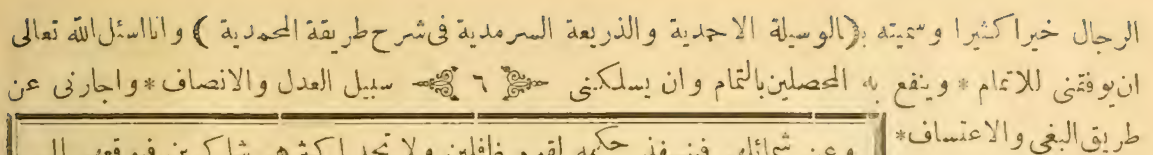 الرجال خيرا كثيرا وسميته بـ(الوسيلة الاحمدية والذريعة السرمدية فى شرح طريقة المحمدية) وانا اسئل الله تعالى
ان يوفقنى للاتمام * وينفع به المحصلين بالتمام وان يسلكنى ٦ سبيل العدل والانصاف * واجارنى عن
طريق البغى والاعتساف *
وعن شمائلهم لقوم غافلين ولا تجد اكثرهم شاكرين